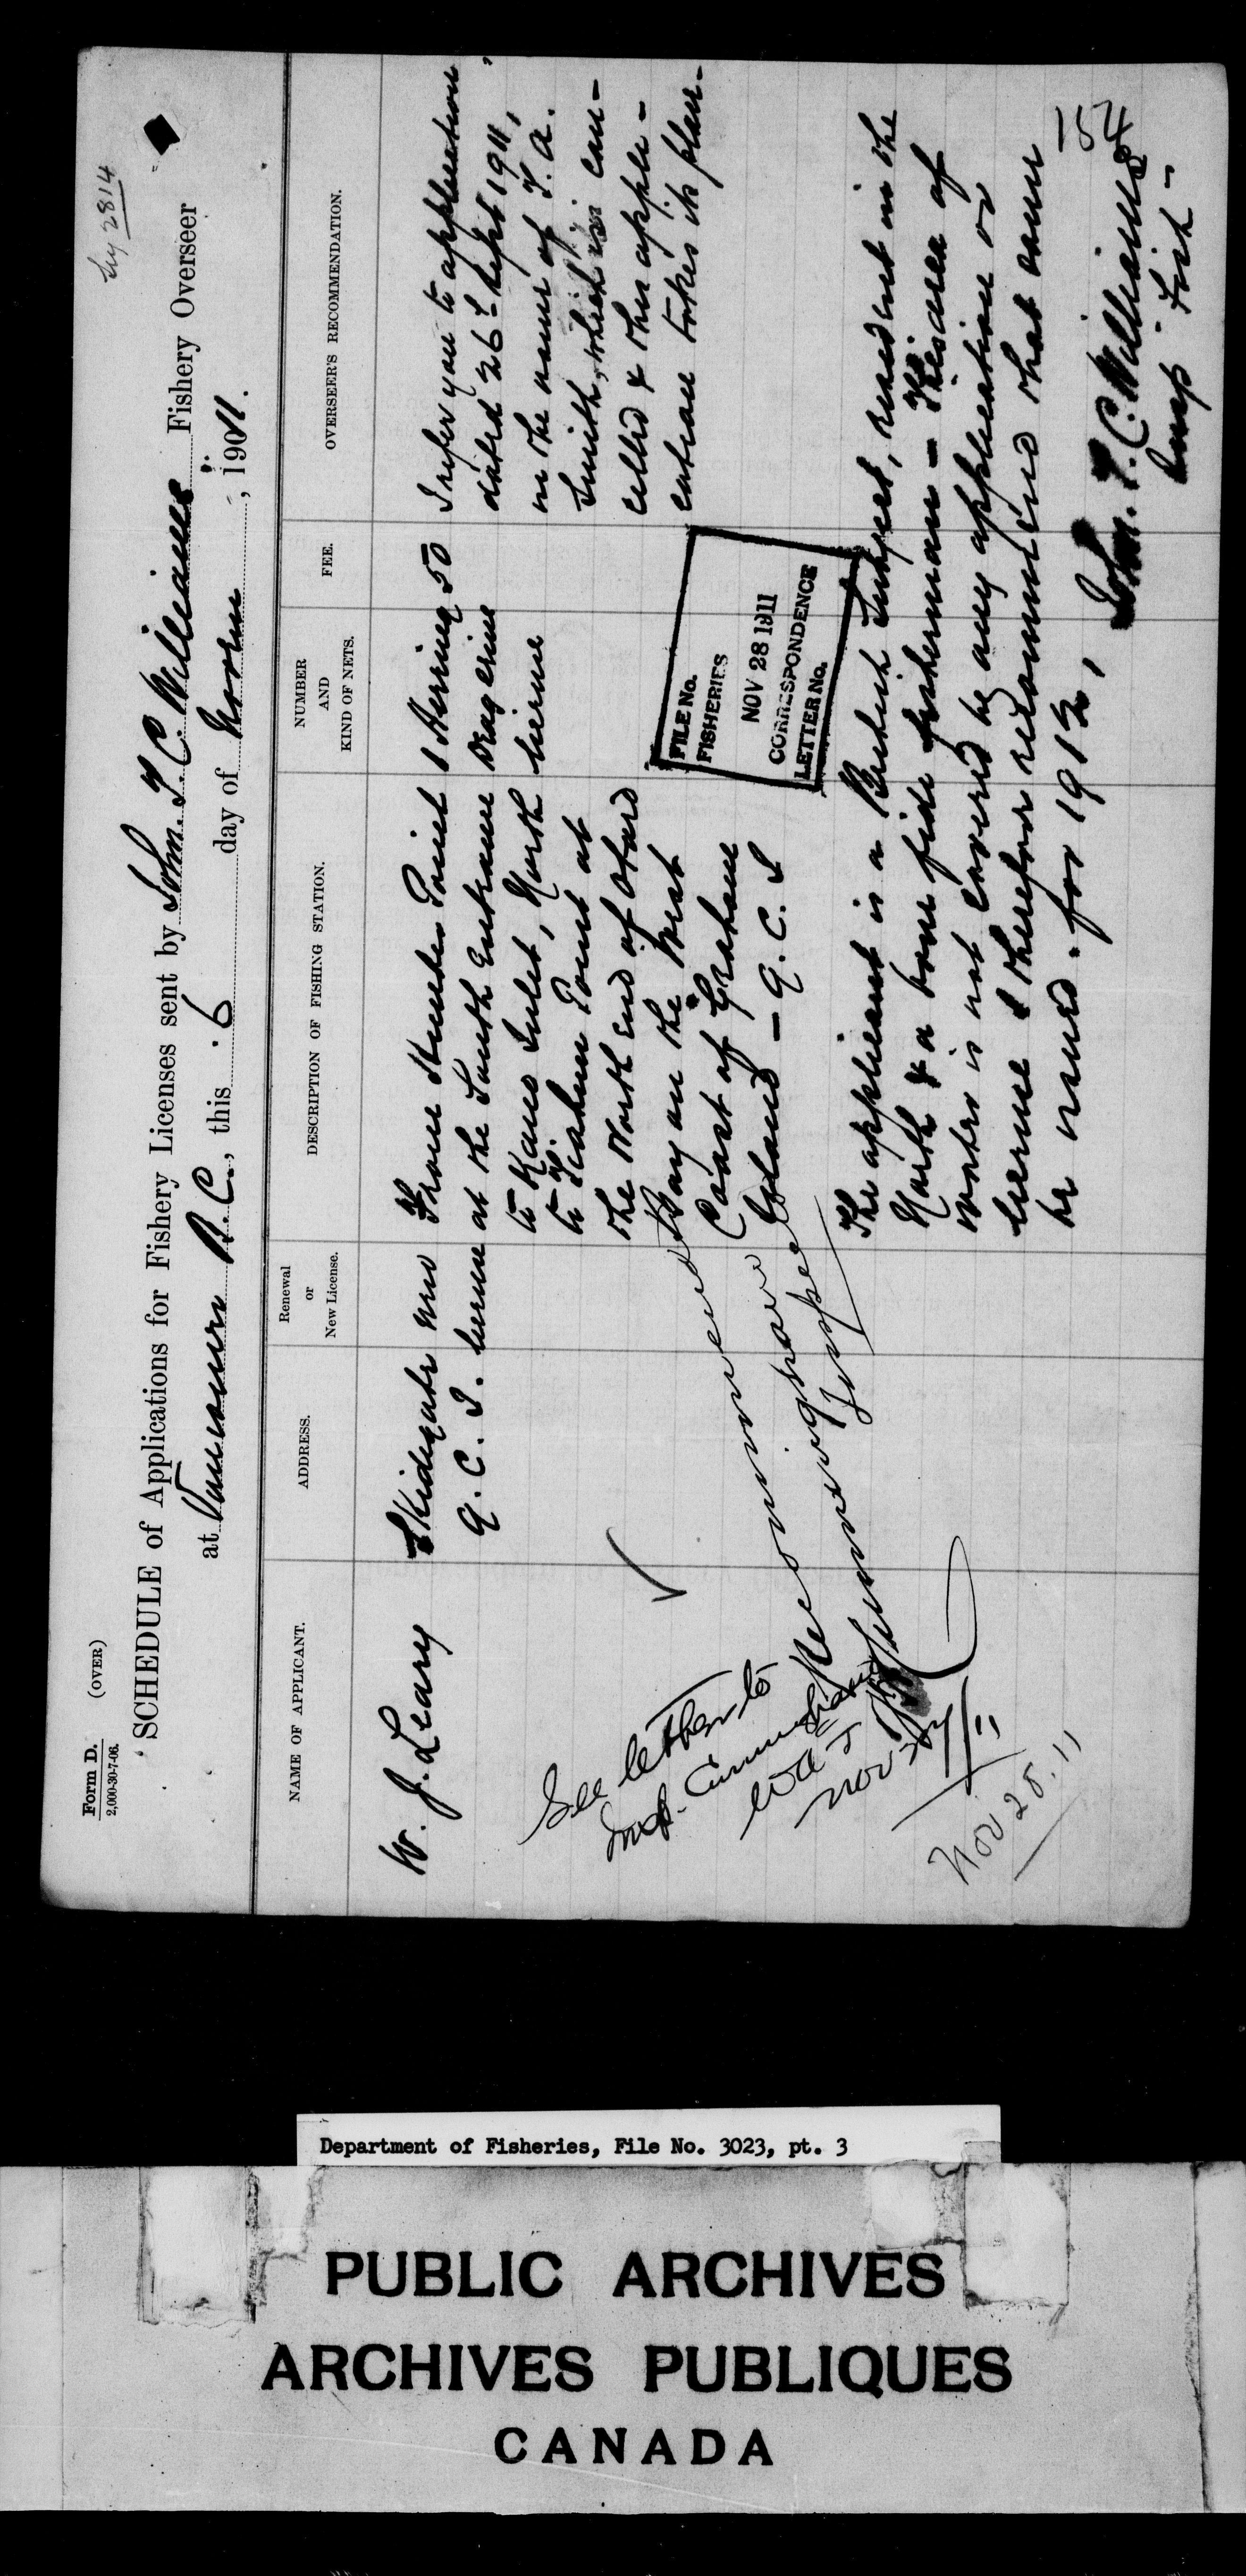 Form D. (OVER)
2,000-30-7-06.
2814
SCHEDULE of Applications for Fishery Licenses sent by John. T. C. Williams Fishery Overseer
at Vancouver B.C., this 6 day of Novem , 1911.
NAME OF APPLICANT.
ADDRESS.
Renewal
or
New License.
DESCRIPTION OF FISHING STATION.
NUMBER
AND
KIND OF NETS.
FEE.
OVERSEER'S RECOMMENDATION.
W. J. Leary
Skidegate
Q. C. I.
new
license
From Hunter Point
at the South Entrance
to Kano Inlet, North
to Tiahun Point at
the North End of Otard
Bay on the West
Coast of Graham
Island - Q. C. I
1 Herring
Drag seine
license
50
I refer you to application
dated 26th Sept 1911,
in the name of T. A.
Smith, which is can-
celled & this appli-
cation takes its place-
FILE No.
FISHERIES
NOV 28 1911
CORRESPONDENCE
LETTER No.
The applicant is a British Subject, resident in the
North & a bona fide fisherman - This area of
water is not covered by any application or
license I therefore recommend that same
be issued. for 1912,
John. T. C. Williams
Insp Fish -
154
Recommended
Cunningham
Insper
See letter to
Insp. Cunningham
Nov 28. 11
Department of Fisheries, File No. 3023, pt. 3
PUBLIC ARCHIVES
ARCHIVES PUBLIQUES
CANADA